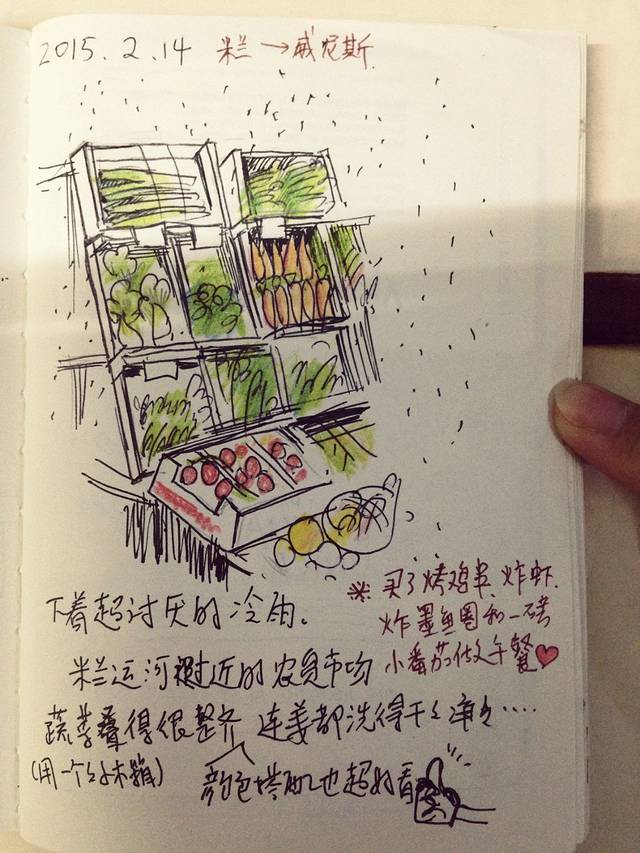 2015.2.14 米兰→威尼斯
※ 买了烤鸡串、炸虾、
炸墨鱼圈和一磅
小番茄做午餐
下着超讨厌的冷雨。
米兰运河附近的农贸市场
蔬菜叠得很整齐 连姜都洗得干干净净……
(用一个个木箱)
颜色搭配也超好看